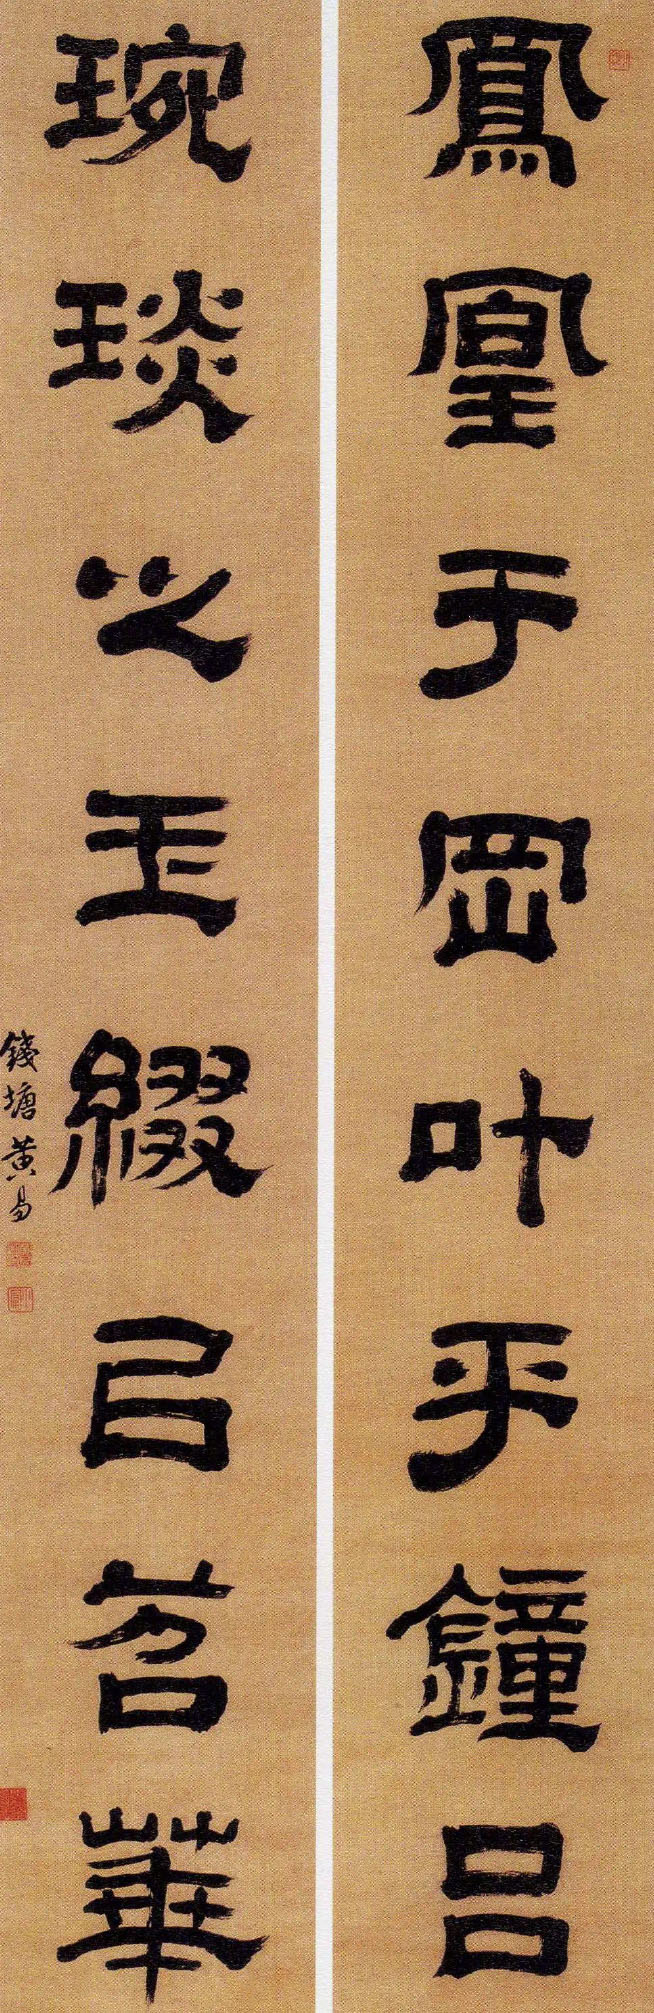 鳳凰于岡叶乎鐘呂
琬琰之玉綴㠯苕華
錢塘黃易